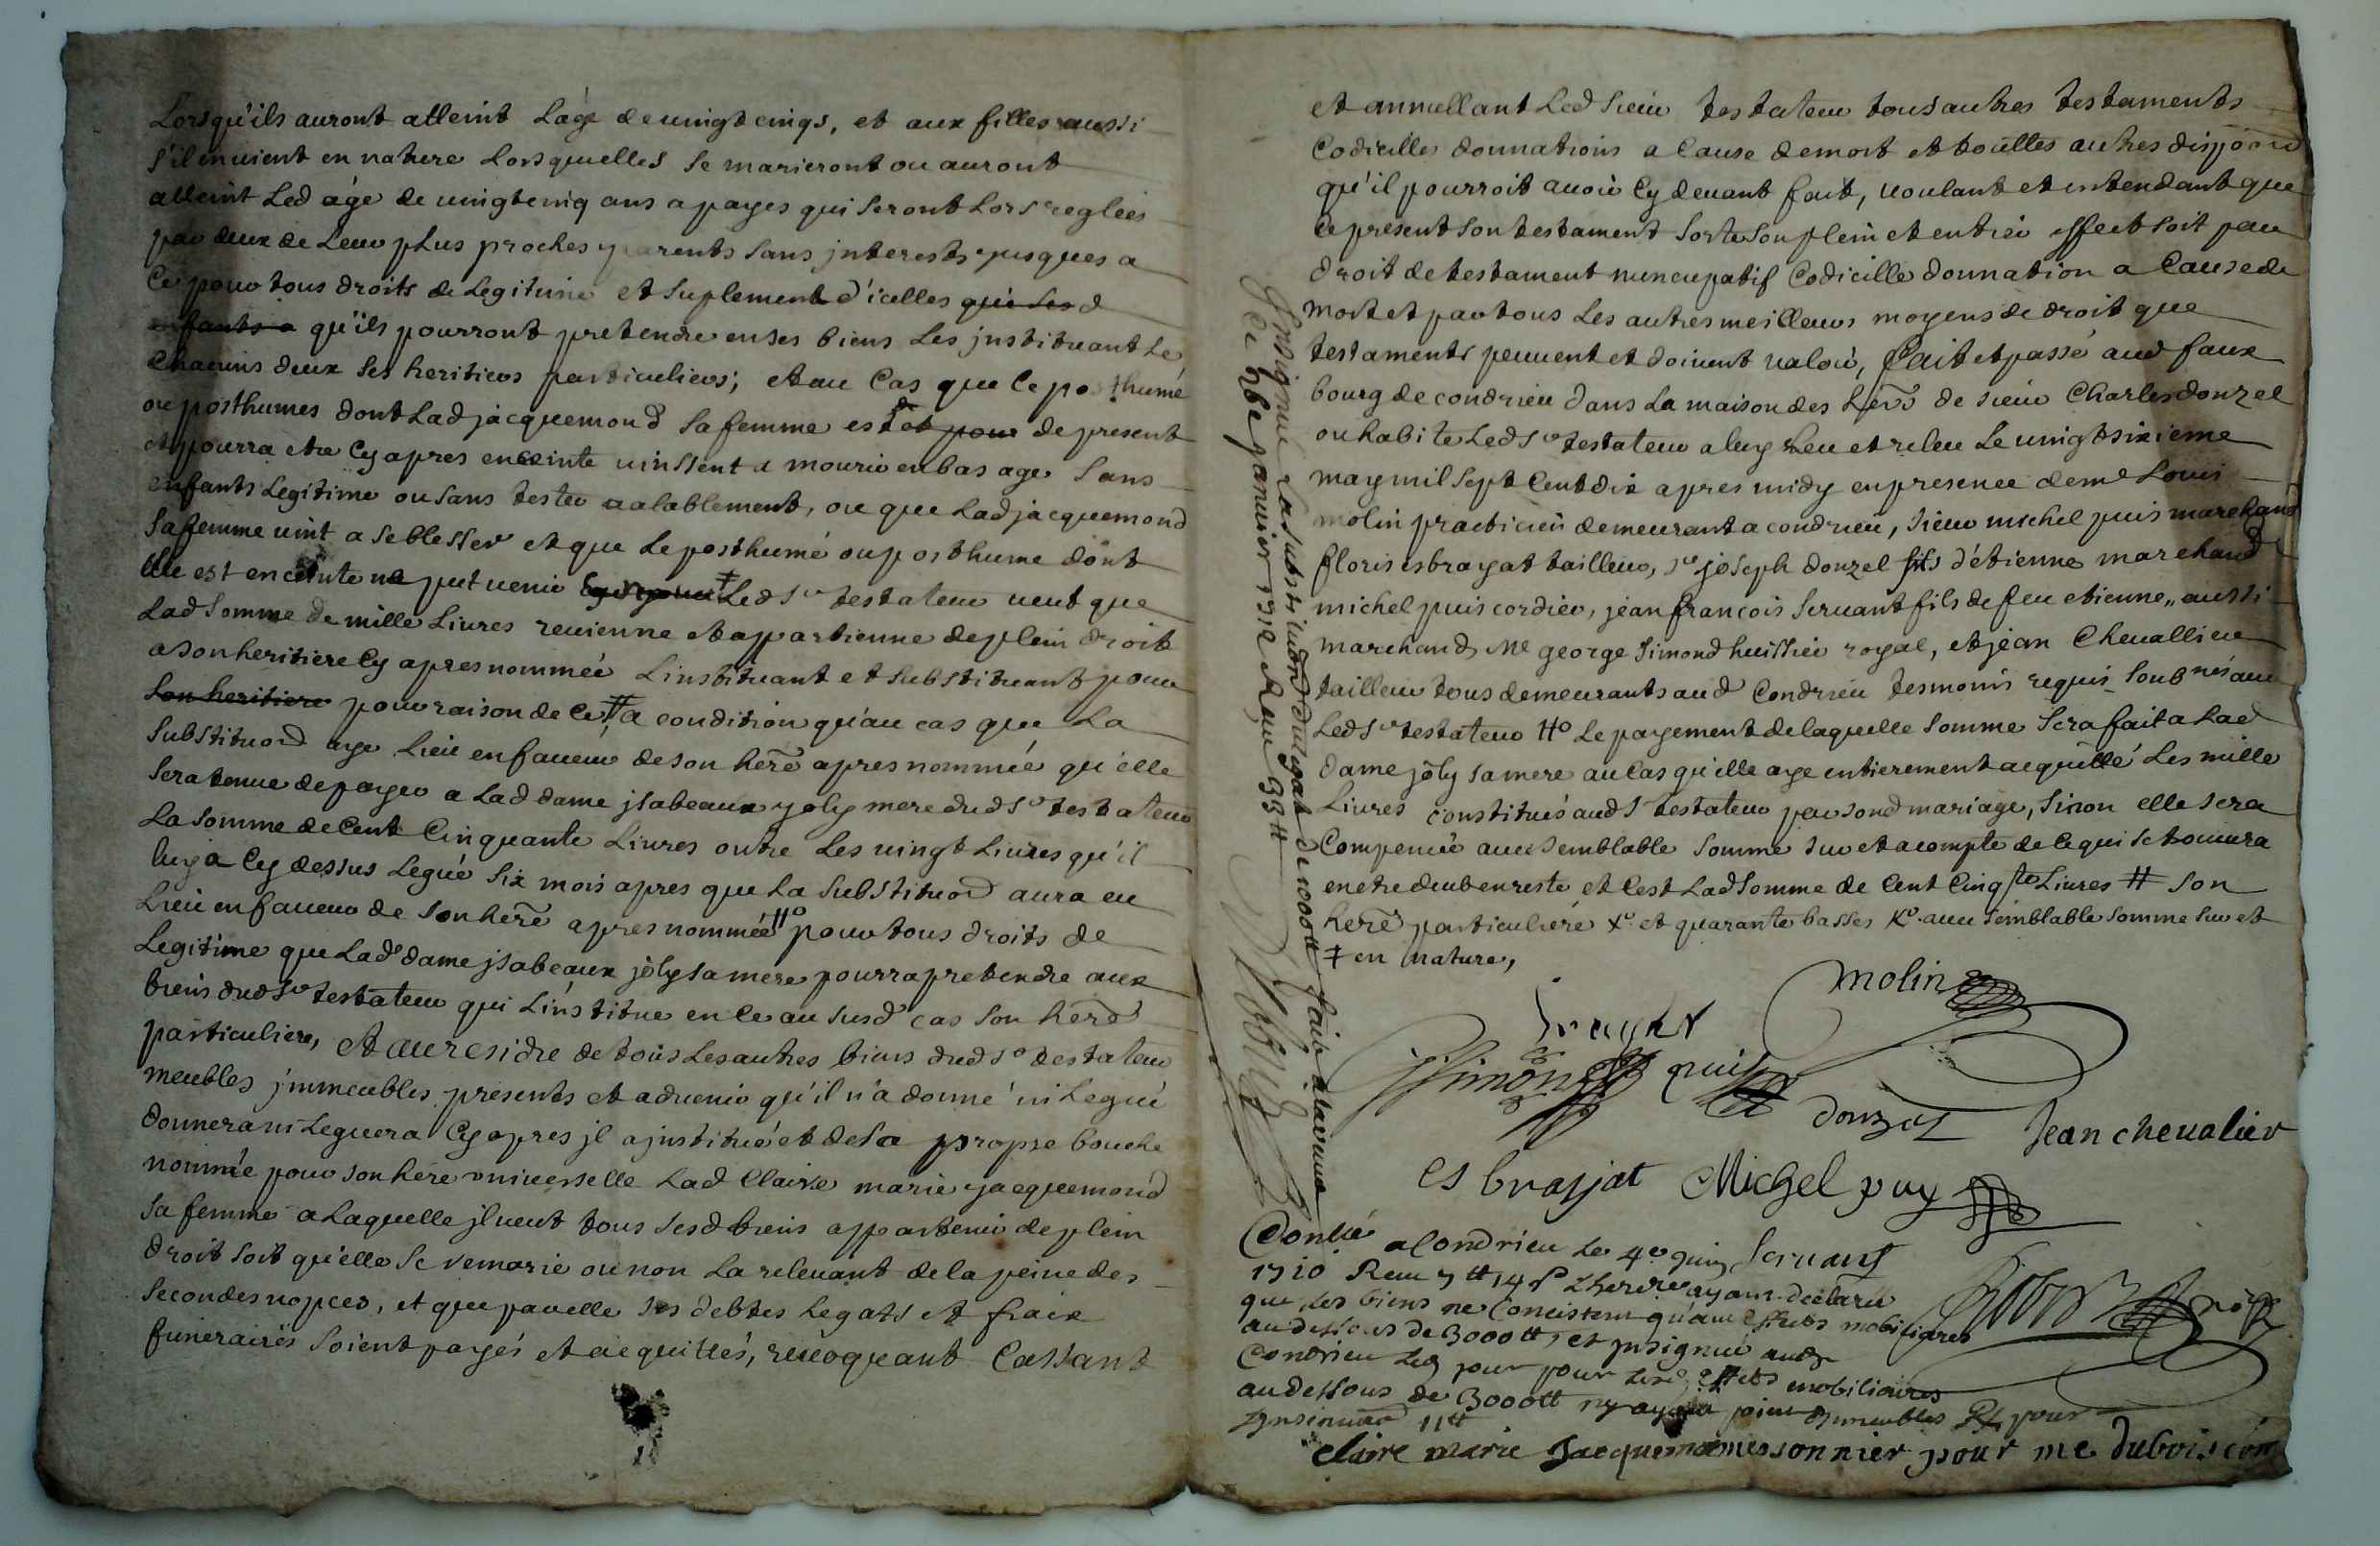 Lorsqu'ils auront atteint L'age de uingt cinqs, et aux filles aussi
s'il en uient en nature Lors quelles se marieront ou auront
atteint Led age de uingt cinq ans a payes qui seront Lors reglées
par deux de Leurs plus proches parents sans jnterests jusques a
Ce pour tous droits de Legitime et suplement d'icelles que Lesd
enfants a qu'ils pourront pretendre en ses biens Les jnstituant Le
Chacuns deux ses heritiers particuliers; et au Cas que le posthume
ou posthumes dont Lad jacquemond sa femme est de present
et pourra etre Cy apres enceinte uinssent a mourir en bas age sans
enfants Legitime ou sans tester ualablement, ou que Lad jacquemond
sa femme uint a se blesser et que Le posthume ou posthume dont
Elle est enceinte ne put uenir ‡ Led sr testateur ueut que
Lad somme de mille Liures reuienne et appartienne de plein droit
a son heritiere Cy apres nommée L'instituant et substituant pour
son heritiere pour raison de Ce # a condition qu'au cas que La
substituōn aye Lieu en faueur de son here apres nommée qu'elle
sera tenue de payer a Lad dame jsabeaux joly mere dud sr testateur
La somme de Cent Cinquante Liures outre Les uingt Liures qu'il
luy a Cy dessus Legué six mois apres que La substituōn aura eu
Lieu en faueur de son here apres nommée #o pour tous droits de
Legitime que Lade dame jsabeaux joly sa mere pourra pretendre aux
biens dud sr testateur qui L'institue en Ce au susd cas son here
particuliere, et au residre de tous Les autres biens dud sr testateur
meubles jmmeubles presents et aduenir qu'il n'a donné ni Legué
donnera ni Leguera Cy apres jl a jnstitué et de sa propre bouche
nommée pour son here uniuerselle Lad Claire marie jacquemond
sa femme a Laquelle jl ueut tous sesd biens appartenir de plein
droit soit qu'elle se remarie ou non La releuant de la peine des
secondes nopces, et que par elle ses debtes Legats et fraix
funeraires soient payés et acquittés, reuoquant Cassant
et annullant Led sieur testateur tous autres testaments
Codicilles donnations a Cause de mort et touttes autres disposōns
qu'il pourroit auoir Cy deuant fait, uoulant et entendant que
Ce present son testament sorte son plein et entier effect soit par
droit de testament nuncupatif Codicille donnation a Cause de
mort et par tous Les autres meilleurs moyens de droit que
testaments peuuent et doiuent ualoir, fait et passé aud faux
bourg de condrieu dans La maison des hers de sieur Charles donzel
ou habite Led sr testateur a luy Leu et releu Le uingt sixieme
may mil sept Cent dix apres midy en presence de me Louis
molin practicien demeurant a condrieu, sieur michel puis marchand
floris esbrayat tailleur, sr joseph donzel fils d'étienne marchand
michel puis cordier, jean francois seruant fils de feu etienne aussi
marchand, Me george simond huissier royal, et jean Cheuallier
tailleur tous demeurants aud Condrieu tesmoins requis soubnés auec
Led sr testateur #o Le payement de laquelle somme sera fait a Lad
dame joly sa mere au Cas qu'elle aye entierement acquitté Les mille
Liures constitués aud s testateur par sond mariage, sinon elle sera
Compensée auec semblable somme sur et a compte de Ce qui se trouuera
en etre deub en reste et C'est Lad somme de Cent Cinqte Liures # son
here particuliere Xo et quarante basses Ko auec semblable somme sur et
‡ en nature,
molin
simond puis
donzel Jean cheualier
esbrayat Michel puy
Contlé a Condrieu Le 4e juin seruant
1710 Receu 7 # 14 s L'heritre ayant declaré
que les biens ne Consistent qu'aux effects mobiliaires
au dessous de 3000 #, et jnsignué aud
Condrieu Led jour pour Lesd effets mobiliaires
au dessous de 3000 # ny ayant point d'jmmeubles
jnsinuaōn 11 #
Claire marie Jacquemond messonnier pour me dubois
Jnsignué La substituōn du Legat de 1000 # fait a la uenue
Le 26 januier 1712 Receu 33 #